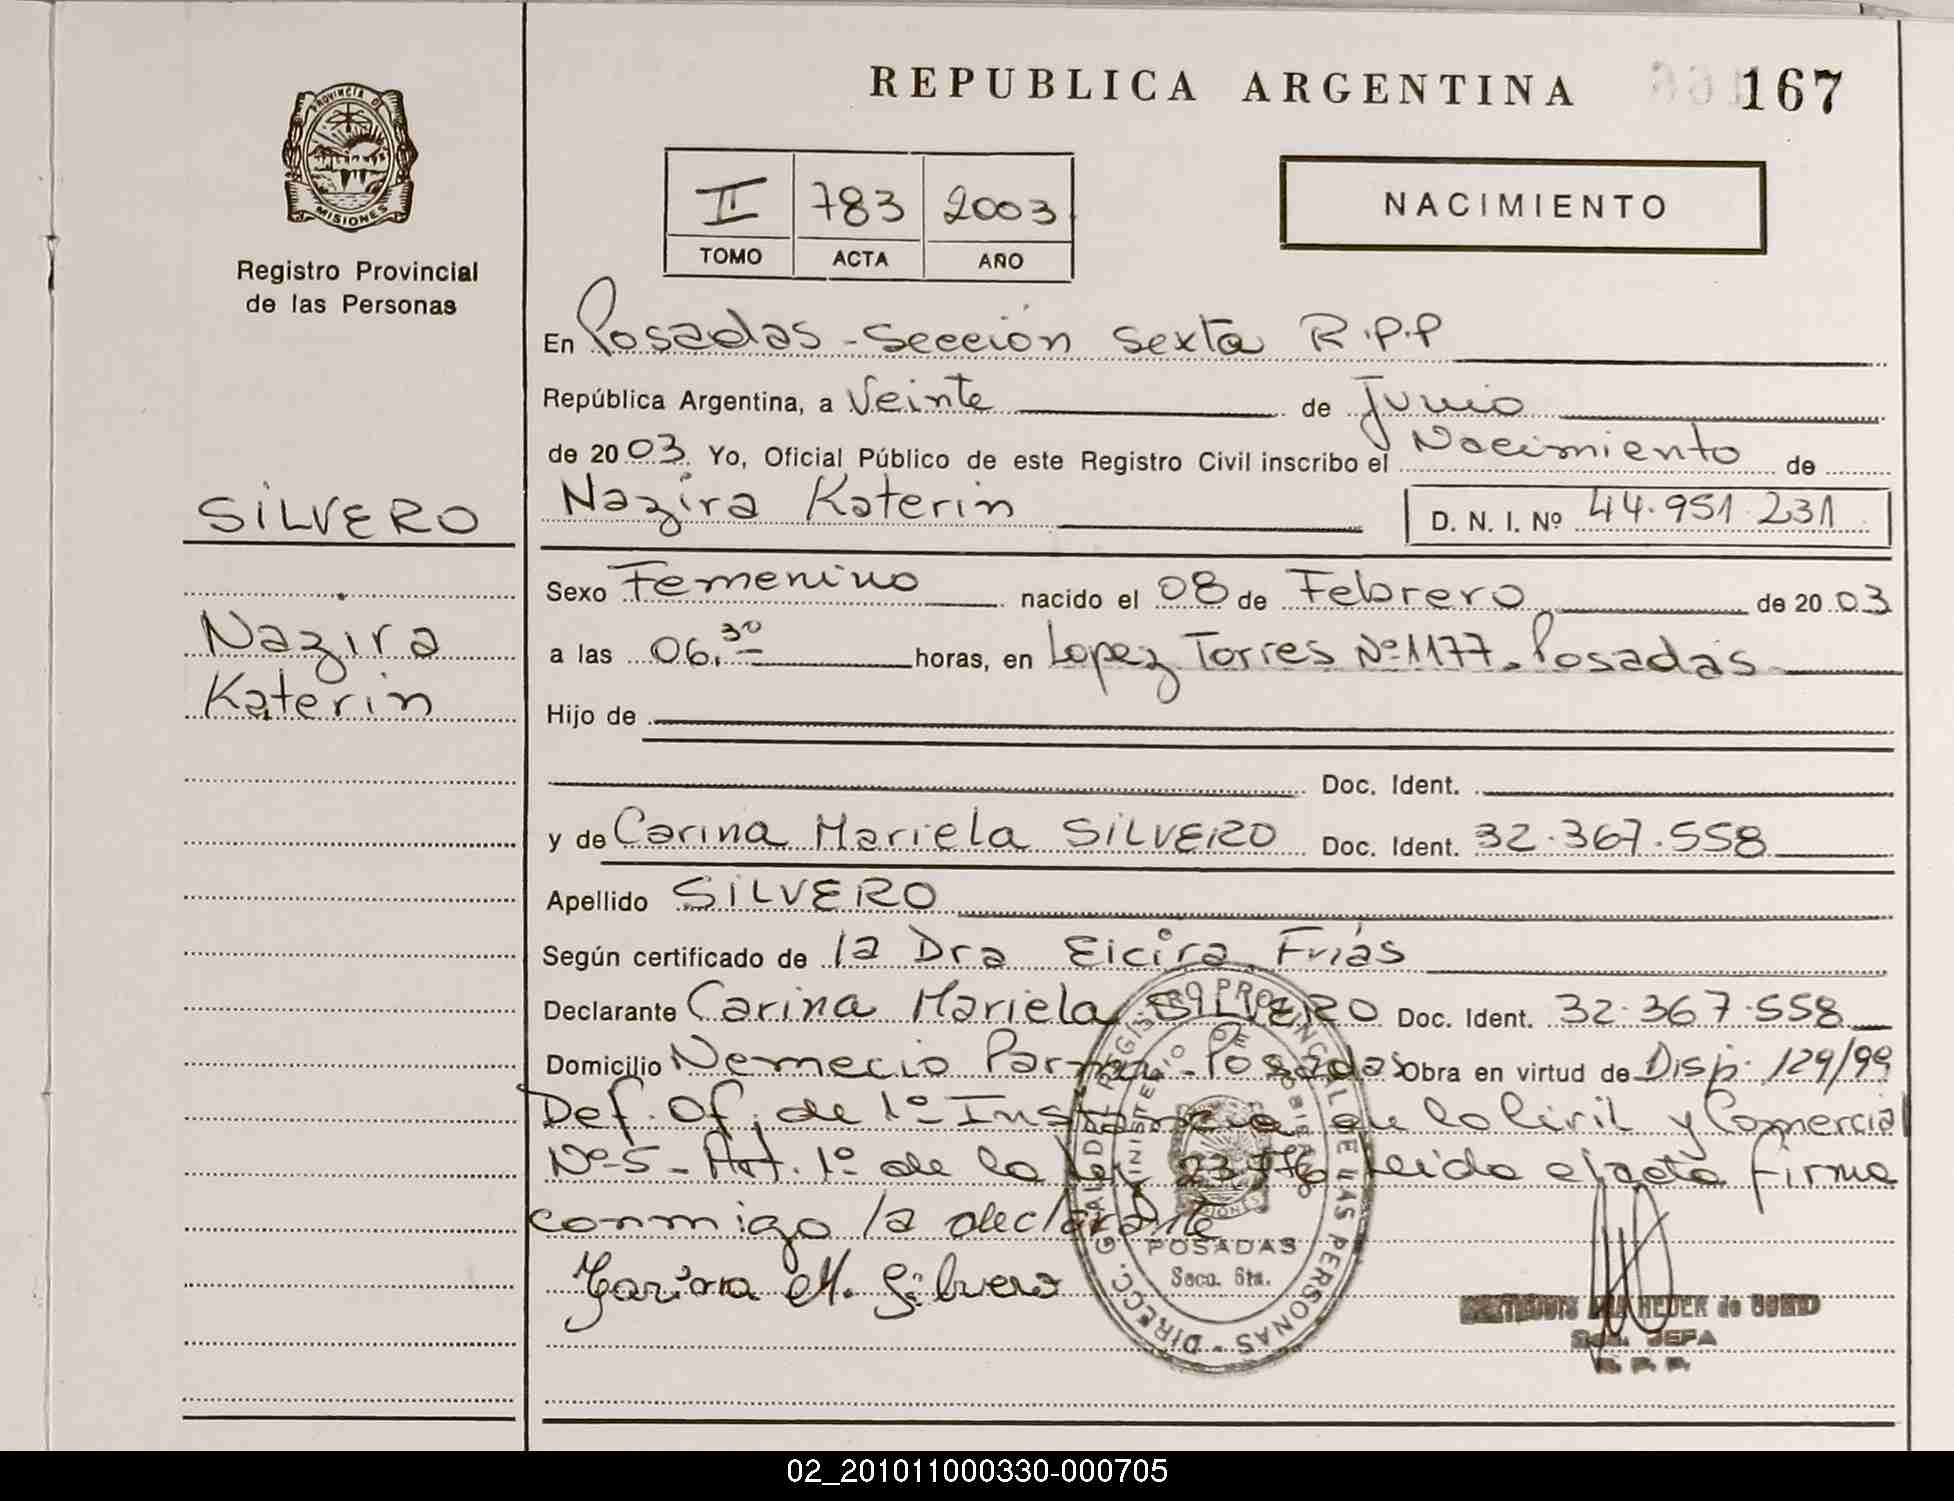 REPUBLICA ARGENTINA 167
PROVINCIA DE
MISIONES
Registro Provincial
de las Personas
II 783 2003
TOMO ACTA AÑO
NACIMIENTO
En Posadas - Sección Sexta R.P.P
República Argentina, a Veinte de Junio
de 2003. Yo, Oficial Público de este Registro Civil inscribo el Nacimiento de
Nazira Katerin D. N. I. Nº 44.951.231
SILVERO
Nazira
Katerin
Sexo Femenino nacido el 08 de Febrero de 2003
a las 06.30 horas, en Lopez Torres Nº 1177. Posadas
Hijo de
Doc. Ident.
y de Carina Mariela SILVERO Doc. Ident. 32.367.558
Apellido SILVERO
Según certificado de la Dra Frías
Declarante Carina Mariela SILVERO Doc. Ident. 32.367.558
Domicilio Nemecio Parma - Posadas Obra en virtud de Disp. 129/99
Def. Of. de 1º Instancia de lo Civil y Comercial
Nº 5 - Art. 1º de la Ley 23.776 Leida el acta firma
conmigo la declarante
Carina M. Silvero
DIRECC. GRAL DEL REGISTRO PROVINCIAL DE LAS PERSONAS
MINISTERIO DE GOBIERNO
MISIONES
POSADAS
Secc. 6ta.
HEDER de
JEFA
R. P. P.
02_201011000330-000705